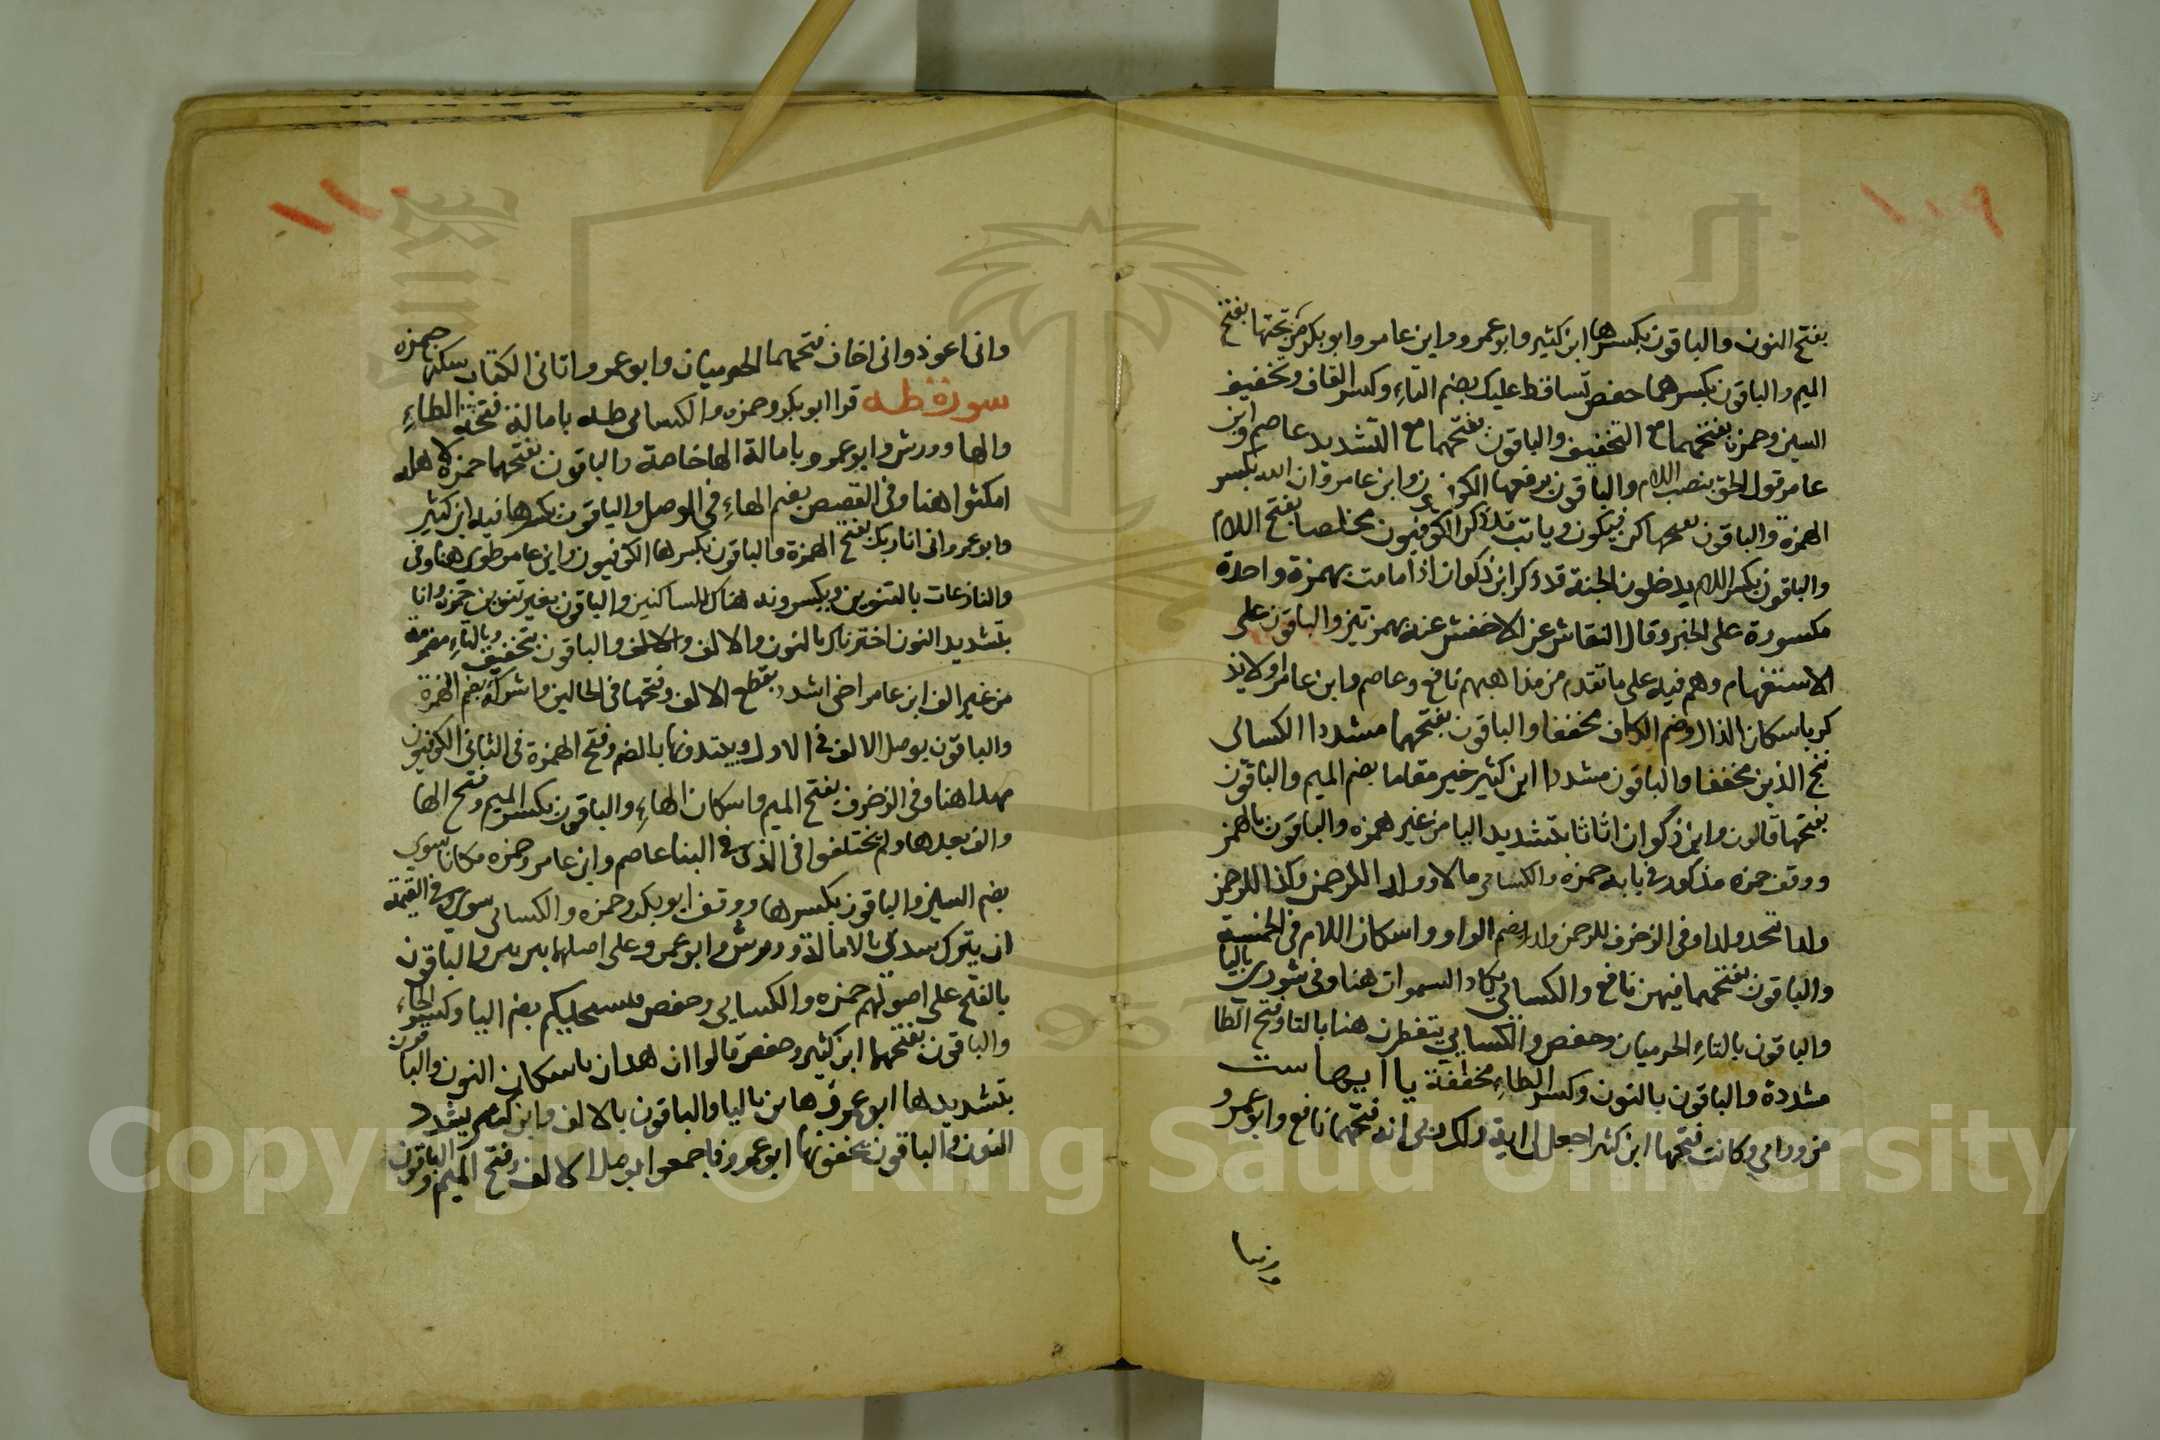 ١٠٩
بفتح النون والباقون بكسرها ابن كثير وابو عمرو وابن عامر وابو بكر من تحتها بفتح
الميم والباقون بكسرهما حفص تساقط عليك بضم التاء وكسر القاف وتخفيف
السين وحمزة بفتحهما مع التخفيف والباقون بفتحهما مع التشديد عاصم وابن
عامر قول الحق بنصب اللام والباقون برفعها الكوفيون وابن عامر وان الله بكسر
الهمزة والباقون بفتحها كن فيكون ويابت قد ذكر الكوفيون مخلصا بفتح اللام
والباقون بكسر اللام يدخلون الجنة قد ذكر ابن ذكوان اذا مامت بهمزة واحدة
مكسورة على الخبر وقال النقاش عن الاخفش عنه بهمزتين والباقون على
الاستفهام وهم فيه على ما تقدم من مذاهبهم نافع وعاصم وابن عامر اولا يذ
كر باسكان الذال وضم الكاف مخففا والباقون بفتحهما مشددا الكسائى
ننج الذين مخففا والباقون مشددا ابن كثير خير مقاما بضم الميم والباقون
بفتحها قالون وابن ذكوان اثاثا بتشديد اليا من غير همزه والباقون بالهمز
ووقف حمزه مذكور فى بابه حمزه والكسائى مالا وولدا للرحمن وكذا للرحمن
ولدا تتخذ ولدا وفى الزخرف للرحمن ولد بضم الواو واسكان اللام فى الخمسة
والباقون بفتحهما فيهن نافع والكسائى يكاد السموات هنا وفى شورى باليا
والباقون بالتاء الحرميان وحفص والكسايى يتفطرن هنا بالتا وفتح الطا
مشددة والباقون بالنون وكسر الطاء مخففة ياايها ست
من وراى وكانت فتحها ابن كثير اجعل لى اية ربى انه فتحهما نافع وابو عمرو
١١٠
وانى اعوذ وانى اخاف فتحهما الحرميان وابو عمرو اتانى الكتاب سكنها حمزه
سورة طه قرا ابو بكر وحمزه والكسائى طه بامالة فتحة الطاء
والها وورش وابو عمرو بامالة الها خاصة والباقون بفتحهما حمزة لاهله
امكثوا هنا وفى القصص بضم الهاء فى الوصل والباقون بكسرها فيه ابن كثير
وابو عمرو انى انا ربك بفتح الهمزة والباقون بكسرها الكوفيون وابن عامر طوى هنا وفى
والنازعات بالتنوين ويكسرونه هناك للساكنين والباقون بغير تنوين حمزه وانا
بتشديد النون اخترناك بالنون والالف والالف والباقون بتخفيف وبالتاء مضمومة
من غير الف ابن عامر اخى اشدد بقطع الالف وفتحها فى الحالين واشركه بضم الهمزة
والباقون بوصل الالف فى الاول ويبتدونها بالضم وفتح الهمزة فى الثانى الكوفيون
مهدا هنا وفى الزخرف بفتح الميم واسكان الهاء والباقون بكسر الميم وفتح الها
والف بعدها ولم يختلفوا فى الذى فى النبا عاصم وابن عامر وحمزه مكانا سوى
بضم السين والباقون بكسرها ووقف ابو بكر وحمزه والكسائى سوى وفى القيمة
ان يترك سدى بالامالة وورش وابو عمرو على اصلهما بين بين والباقون
بالفتح على اصولهم حمزه والكسايى وحفص فيسحتكم بضم اليا وكسر الحاء
والباقون بفتحهما ابن كثير وحفص قالوا ان هذان باسكان النون والباقون
بتشديدها ابو عمرو هاذين باليا والباقون بالالف وابن كثير يشدد
النون والباقون يخففونها ابو عمرو فاجمعوا بوصل الالف وفتح الميم والباقون